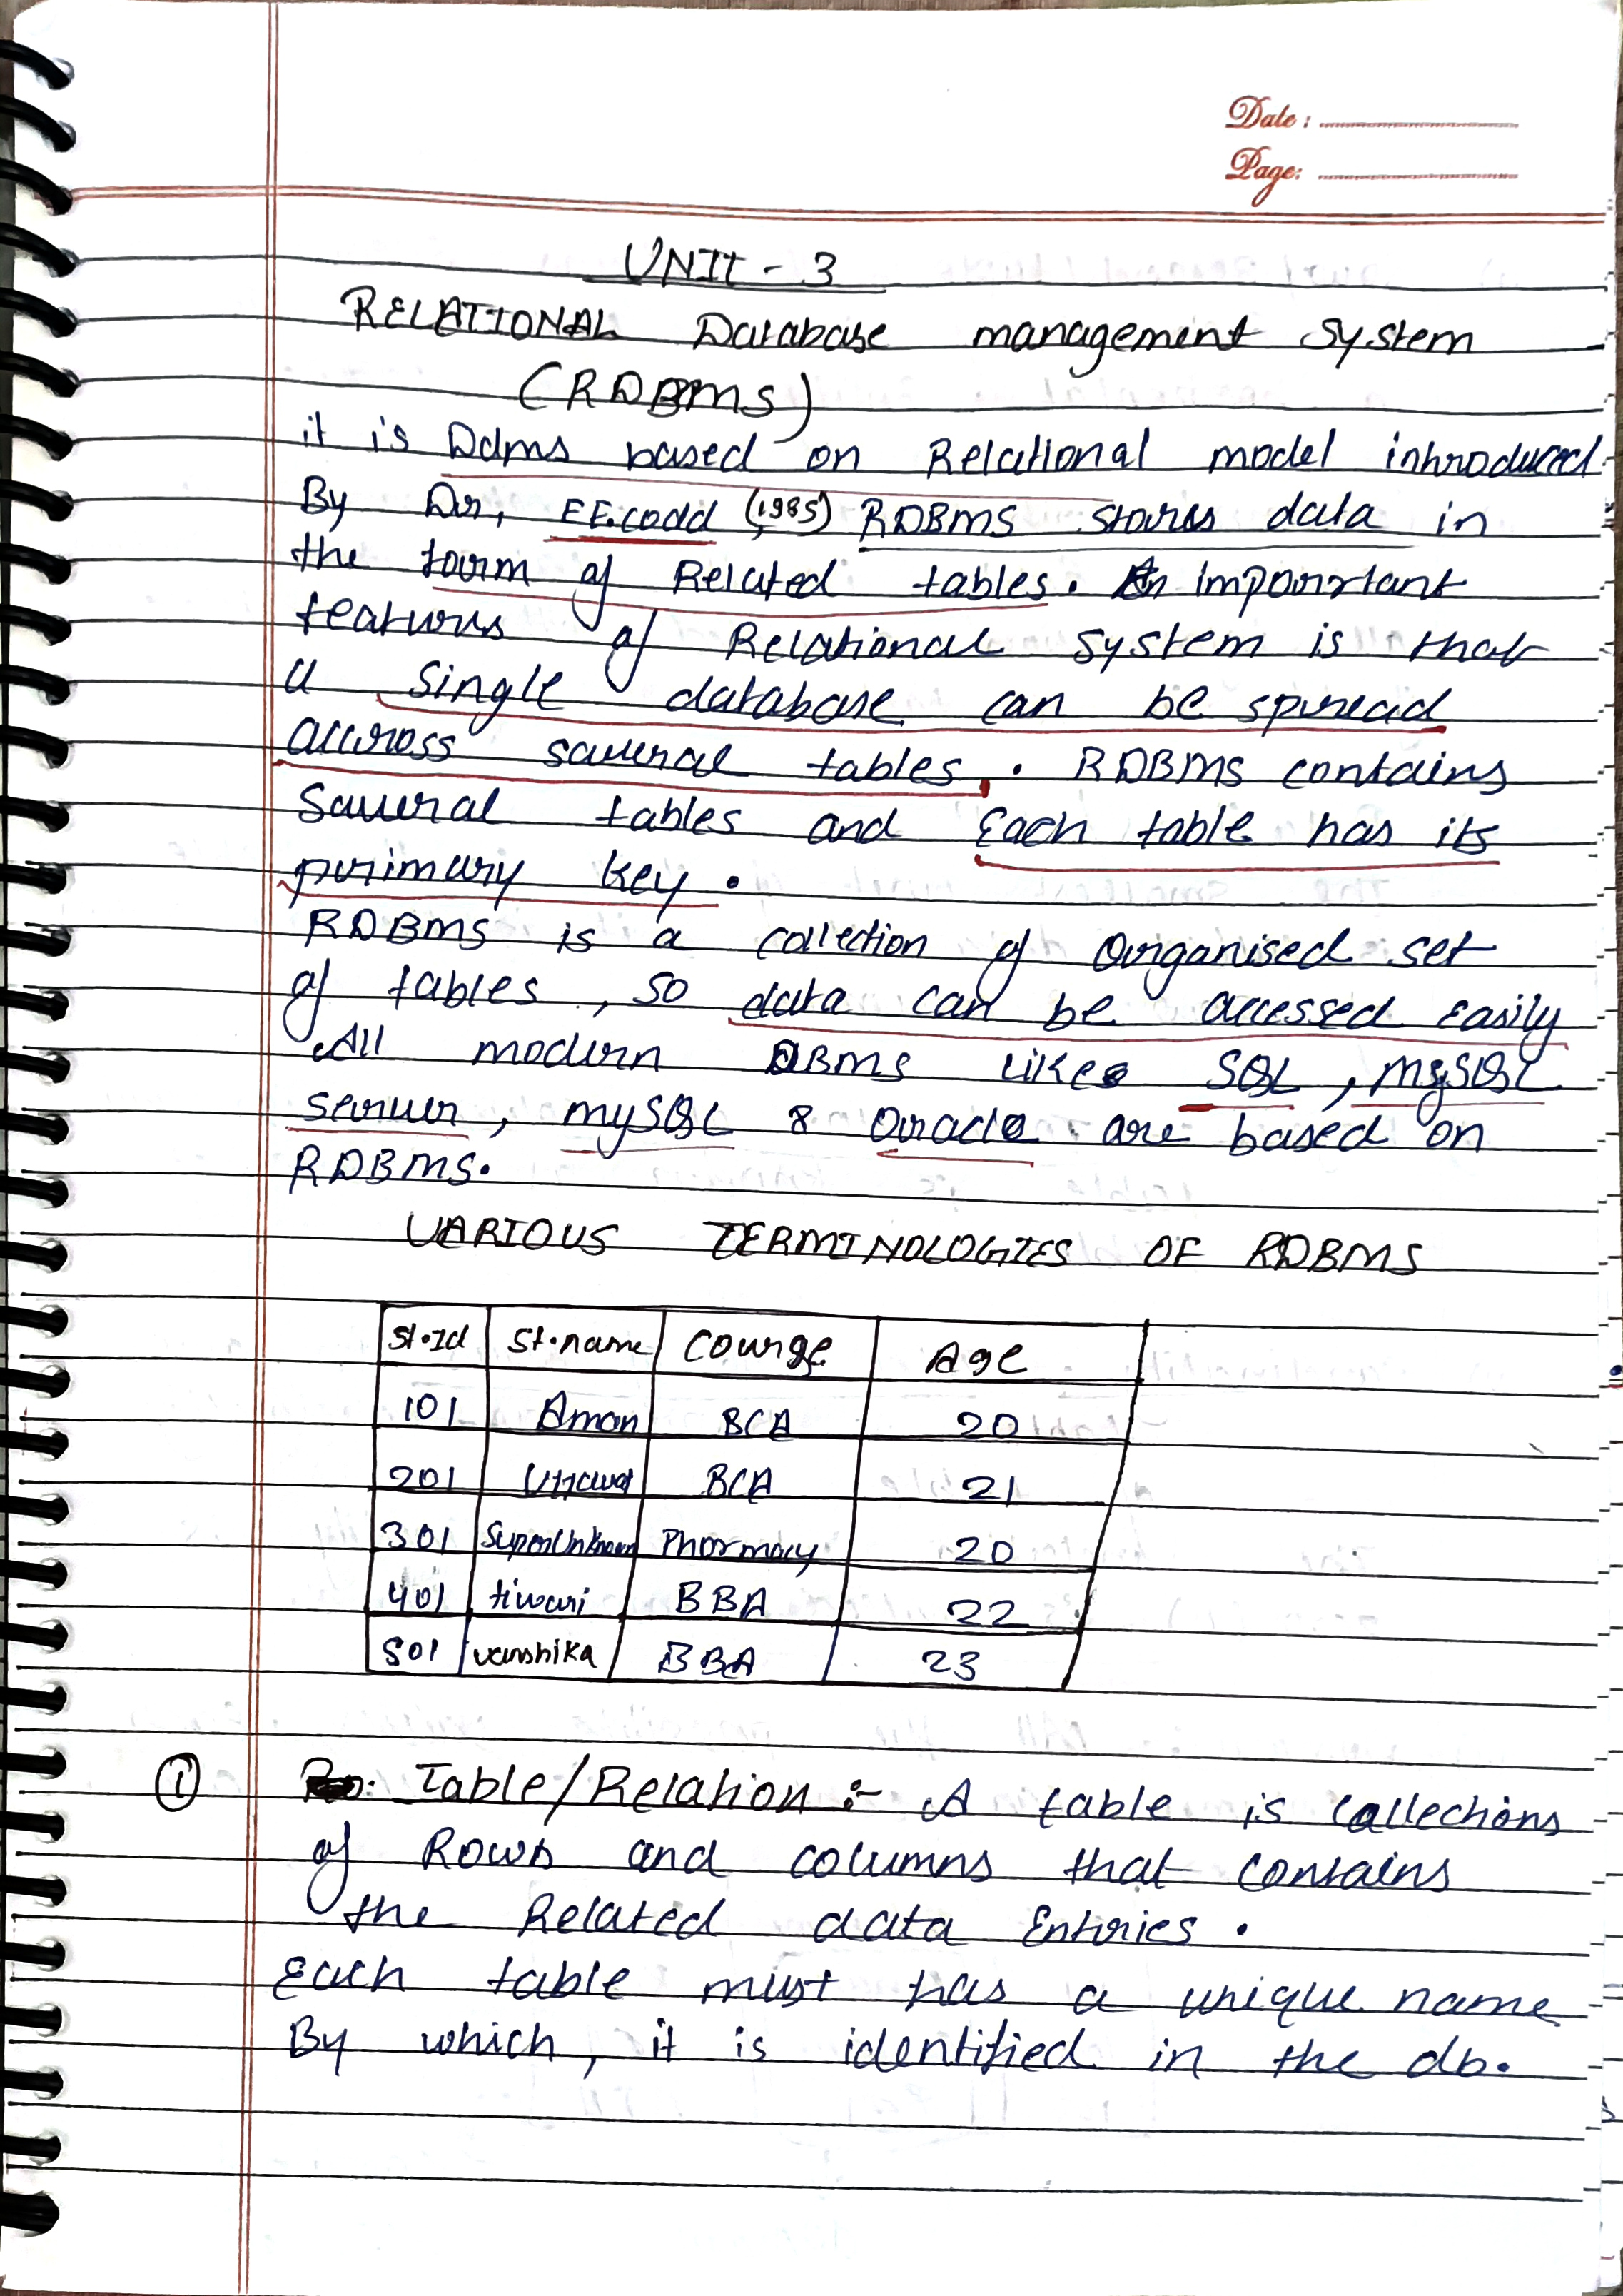 Date :
Page:
UNIT - 3
RELATIONAL Database management system
(RDBMS)
it is Ddms based on Relational model introduced
By Dr, EF.codd (1985) RDBMS stores data in
the form of Related tables. An important
features of Relational system is that
a single database can be spread
accross saveral tables. . RDBMS contains
Saveral tables and Each table has its
primary key .
RDBMS is a collection of organised set
of tables , so data can be accessed easily
All modern DBMS like SQL , MySQL
server, mySQL & Oracle are based on
RDBMS.
VARIOUS TERMINOLOGIES OF RDBMS
St.Id St.name Course Age
101 Aman BCA 20
201 BCA 21
301 SuperUnknown Pharmacy 20
401 tiwari BBA 22
501 vanshika BBA 23
① Table/Relation :- A table is collections
of Rows and columns that contains
the Related data Entries .
Each table must has a unique name
By which, it is identified in the db.